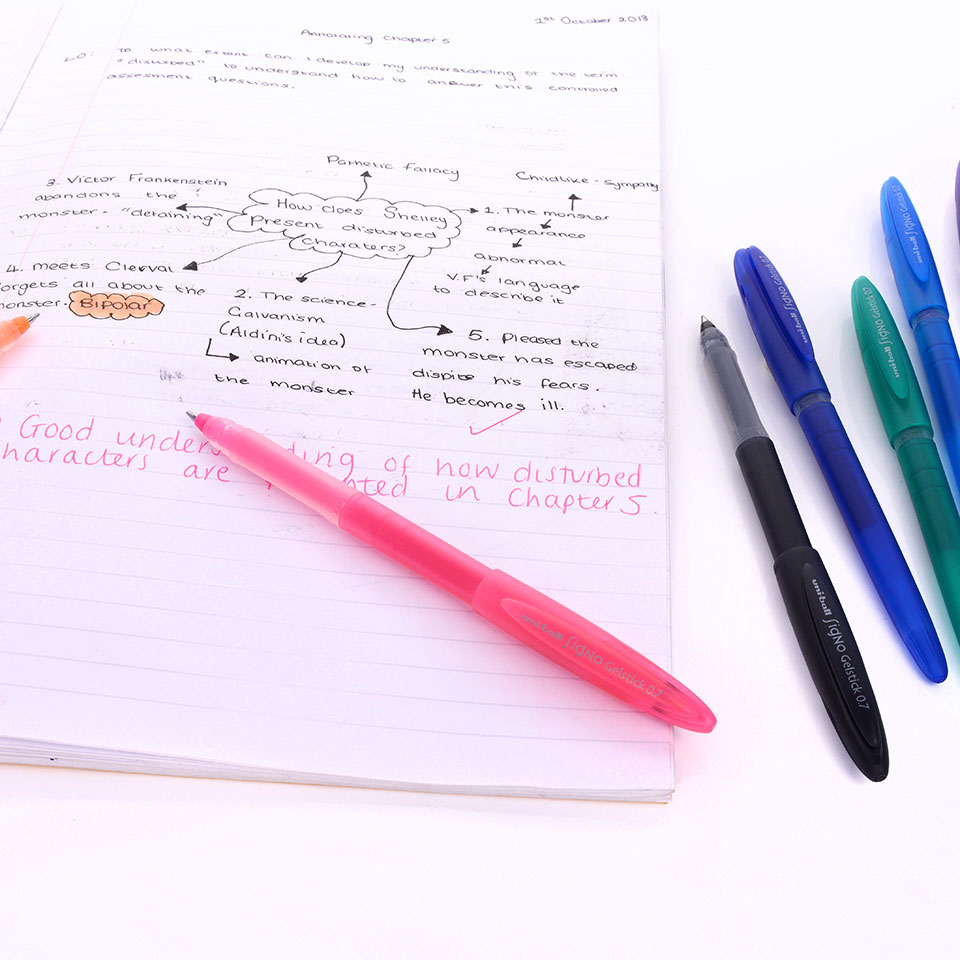 1st October 2013
Annotating Chapter 5
LO: To what extent can I develop my understanding of the term
"disturbed" to understand how to answer this controlled
assesment questions.
Pathetic fallacy
Childlike - sympathy
How does Shelley
Present disturbed
Charaters?
1. The monster
appearance
abnormal
V.F's language
to describe it
3. Victor Frankenstein
abandons the
monster - "detaining"
4. meets Clerval
forgets all about the
monster. Bipolar
2. The science -
Galvanism
(Aldini's idea)
animation of
the monster
5. Pleased the
monster has escaped
dispite his fears.
He becomes ill.
Good understanding of how disturbed
characters are in Chapter 5.
uni-ball SigNO Gelstick 0.7
uni-ball SigNO Gelstick 0.7
uni-ball SigNO Gelstick 0.7
uni-ball SigNO Gelstick 0.7
uni-ball SigNO Gelstick 0.7